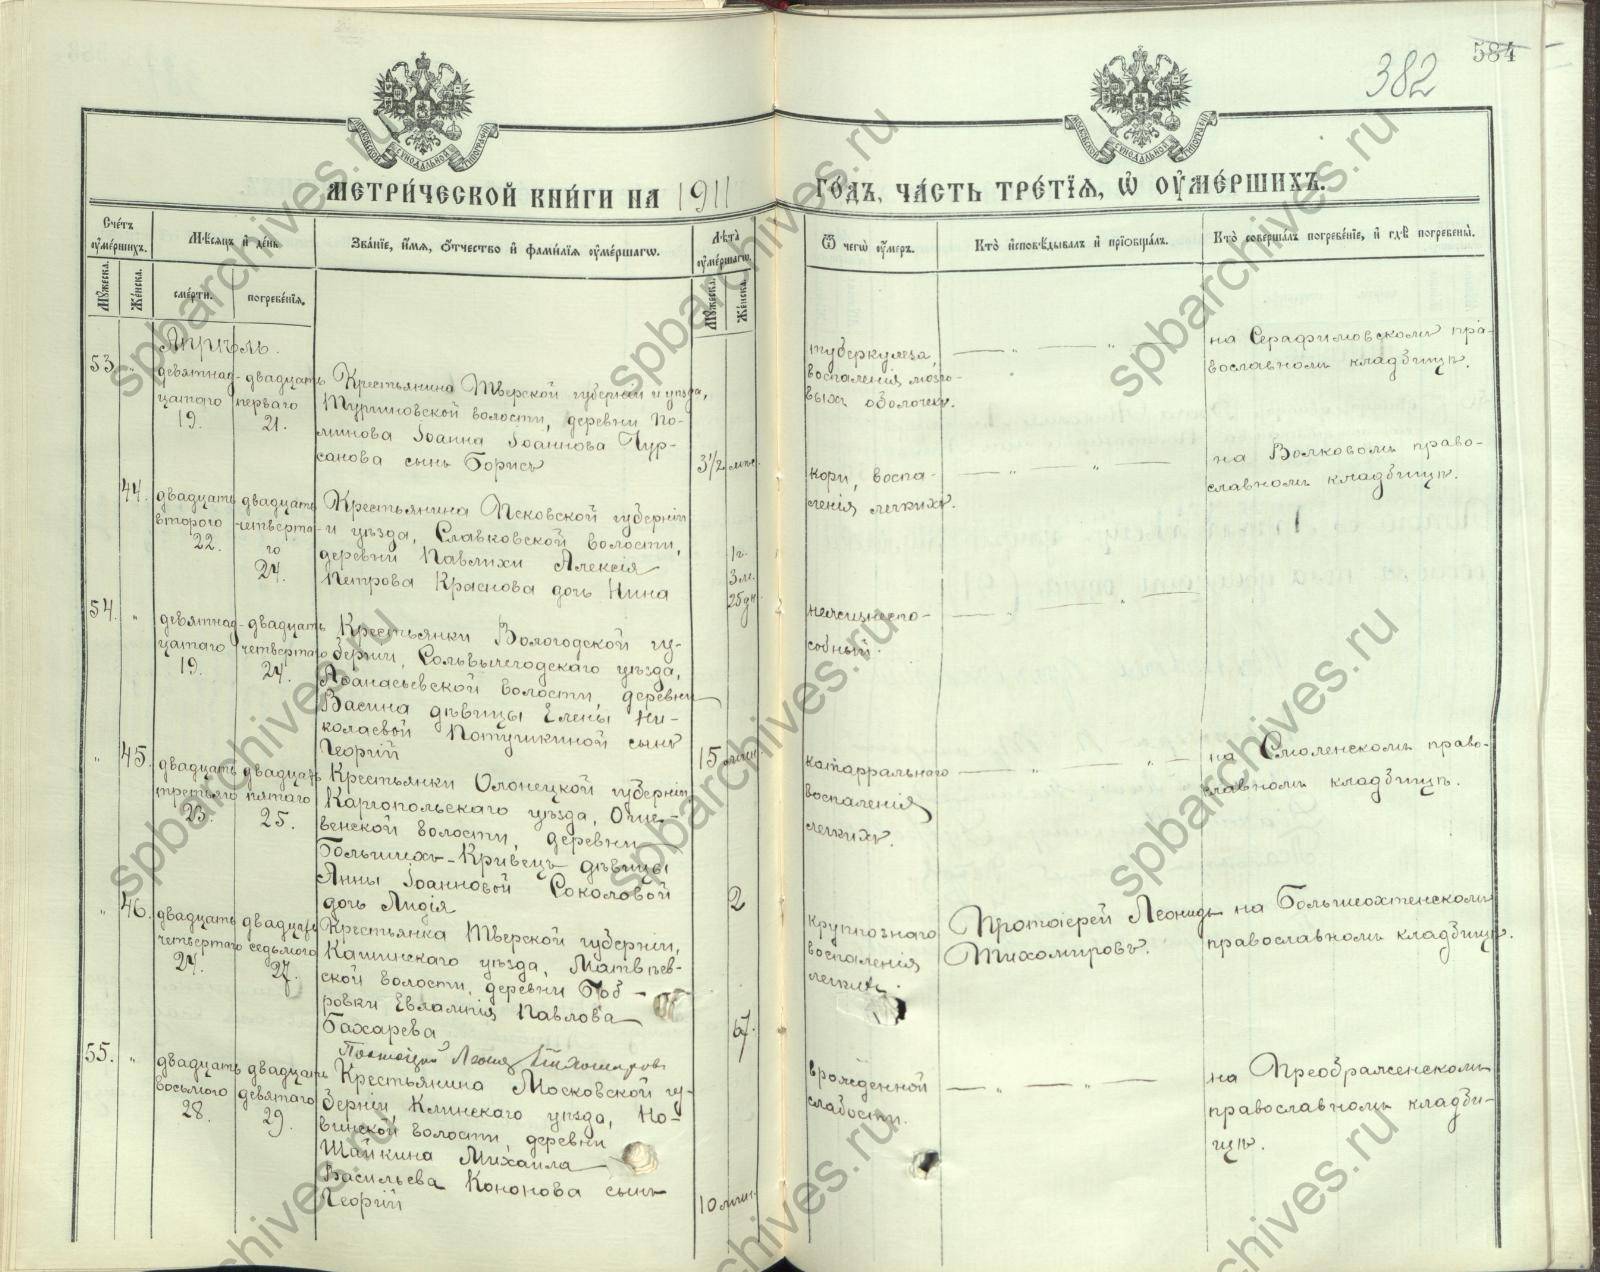 382
584
МОСКОВСКОЙ СѴНОДАЛЬНОЙ ТИПОГРАФІИ
МОСКОВСКОЙ СѴНОДАЛЬНОЙ ТИПОГРАФІИ
МЕТРИ́ЧЕСКОЙ КНИ́ГИ НА 1911 ГО́ДЪ, ЧА́СТЬ ТРЕ́ТІЯ, Ѡ ОУМЕ́РШИХЪ.
Сче́тъ оуме́ршихъ.
Мꙋжеска.
Же́нска.
Мѣ́сяцъ и҆ де́нь
сме́рти.
погребе́нїя.
Зва́нїе, и҆́мя, ѻ҆́тчество и҆ фами́лїя оуме́ршагѡ.
Лѣ́та оуме́ршагѡ.
Мꙋжеска.
Же́нска.
Ѿ чегѡ̀ оу́меръ.
Кто̀ и҆сповѣ́дывалъ и҆ прїѡбща́лъ.
Кто̀ соверша́лъ погребе́нїе, и҆ гдѣ̀ погребены̀.
Апрѣль.
53. "
девятнад-
цатаго
19.
двадцать
перваго
21.
Крестьянина Тверской губерніи и уѣзда,
Тургиновской волости, деревни По-
минова Іоанна Іоаннова Чур-
санова сынъ Борисъ
3½ мѣс.
туберкулеза,
воспаленія мозго-
выхъ оболочекъ.
— " — " —
на Серафимовскомъ пра-
вославномъ кладбищѣ.
44.
двадцать
второго
22.
двадцать
четверта-
го
24.
Крестьянина Псковской губерніи
и уѣзда, Славковской волости,
деревни Павлихи Алексія
Петрова Краснова дочь Нина
1 г.
3 м.
25 дн.
кори, воспа-
ленія легкихъ.
— " — " —
на Волковомъ право-
славномъ кладбищѣ.
54. "
девятнад-
цатаго
19.
двадцать
четвертаго
24.
Крестьянки Вологодской гу-
берніи, Сольвычегодскаго уѣзда,
Афанасьевской волости, деревни
Васина дѣвицы Елены Ни-
колаевой Потушкиной сынъ
Георгій
15 минут
нежизнеспо-
собный.
— " — " —
" 45.
двадцать
третьяго
23.
двадцать
пятаго
25.
Крестьянки Олонецкой губерніи
Каргопольскаго уѣзда, Оше-
венской волости, деревни
Большихъ-Кривецъ дѣвицы
Анны Іоанновой Соколовой
дочь Лидія
2
катарральнаго
воспаленія
легкихъ.
— " — " —
на Смоленскомъ право-
славномъ кладбищѣ.
" 46.
двадцать
четвертаго
24.
двадцать
седьмого
27.
Крестьянка Тверской губерніи,
Кашинскаго уѣзда, Матвѣев-
ской волости, деревни Боб-
ровки Евлампія Павлова
Бахарева
67.
крупознаго
воспаленія
легкихъ.
Протоіерей Леонидъ
Тихомировъ.
на Большеохтенскомъ
православномъ кладбищѣ.
Протоіерей Леонид Тихомиров
55. "
двадцать
восьмого
28.
двадцать
девятаго
29.
Крестьянина Московской гу-
берніи, Клинскаго уѣзда, Но-
винской волости, деревни
Шайкина Михаила
Васильева Кононова сынъ
Георгій
10 мин.
врожденной
слабости.
— " — " —
на Преображенскомъ
православномъ кладби-
щѣ.
spbarchives.ru
spbarchives.ru
spbarchives.ru
spbarchives.ru
spbarchives.ru
spbarchives.ru
chives.ru
chives.ru
chives.ru